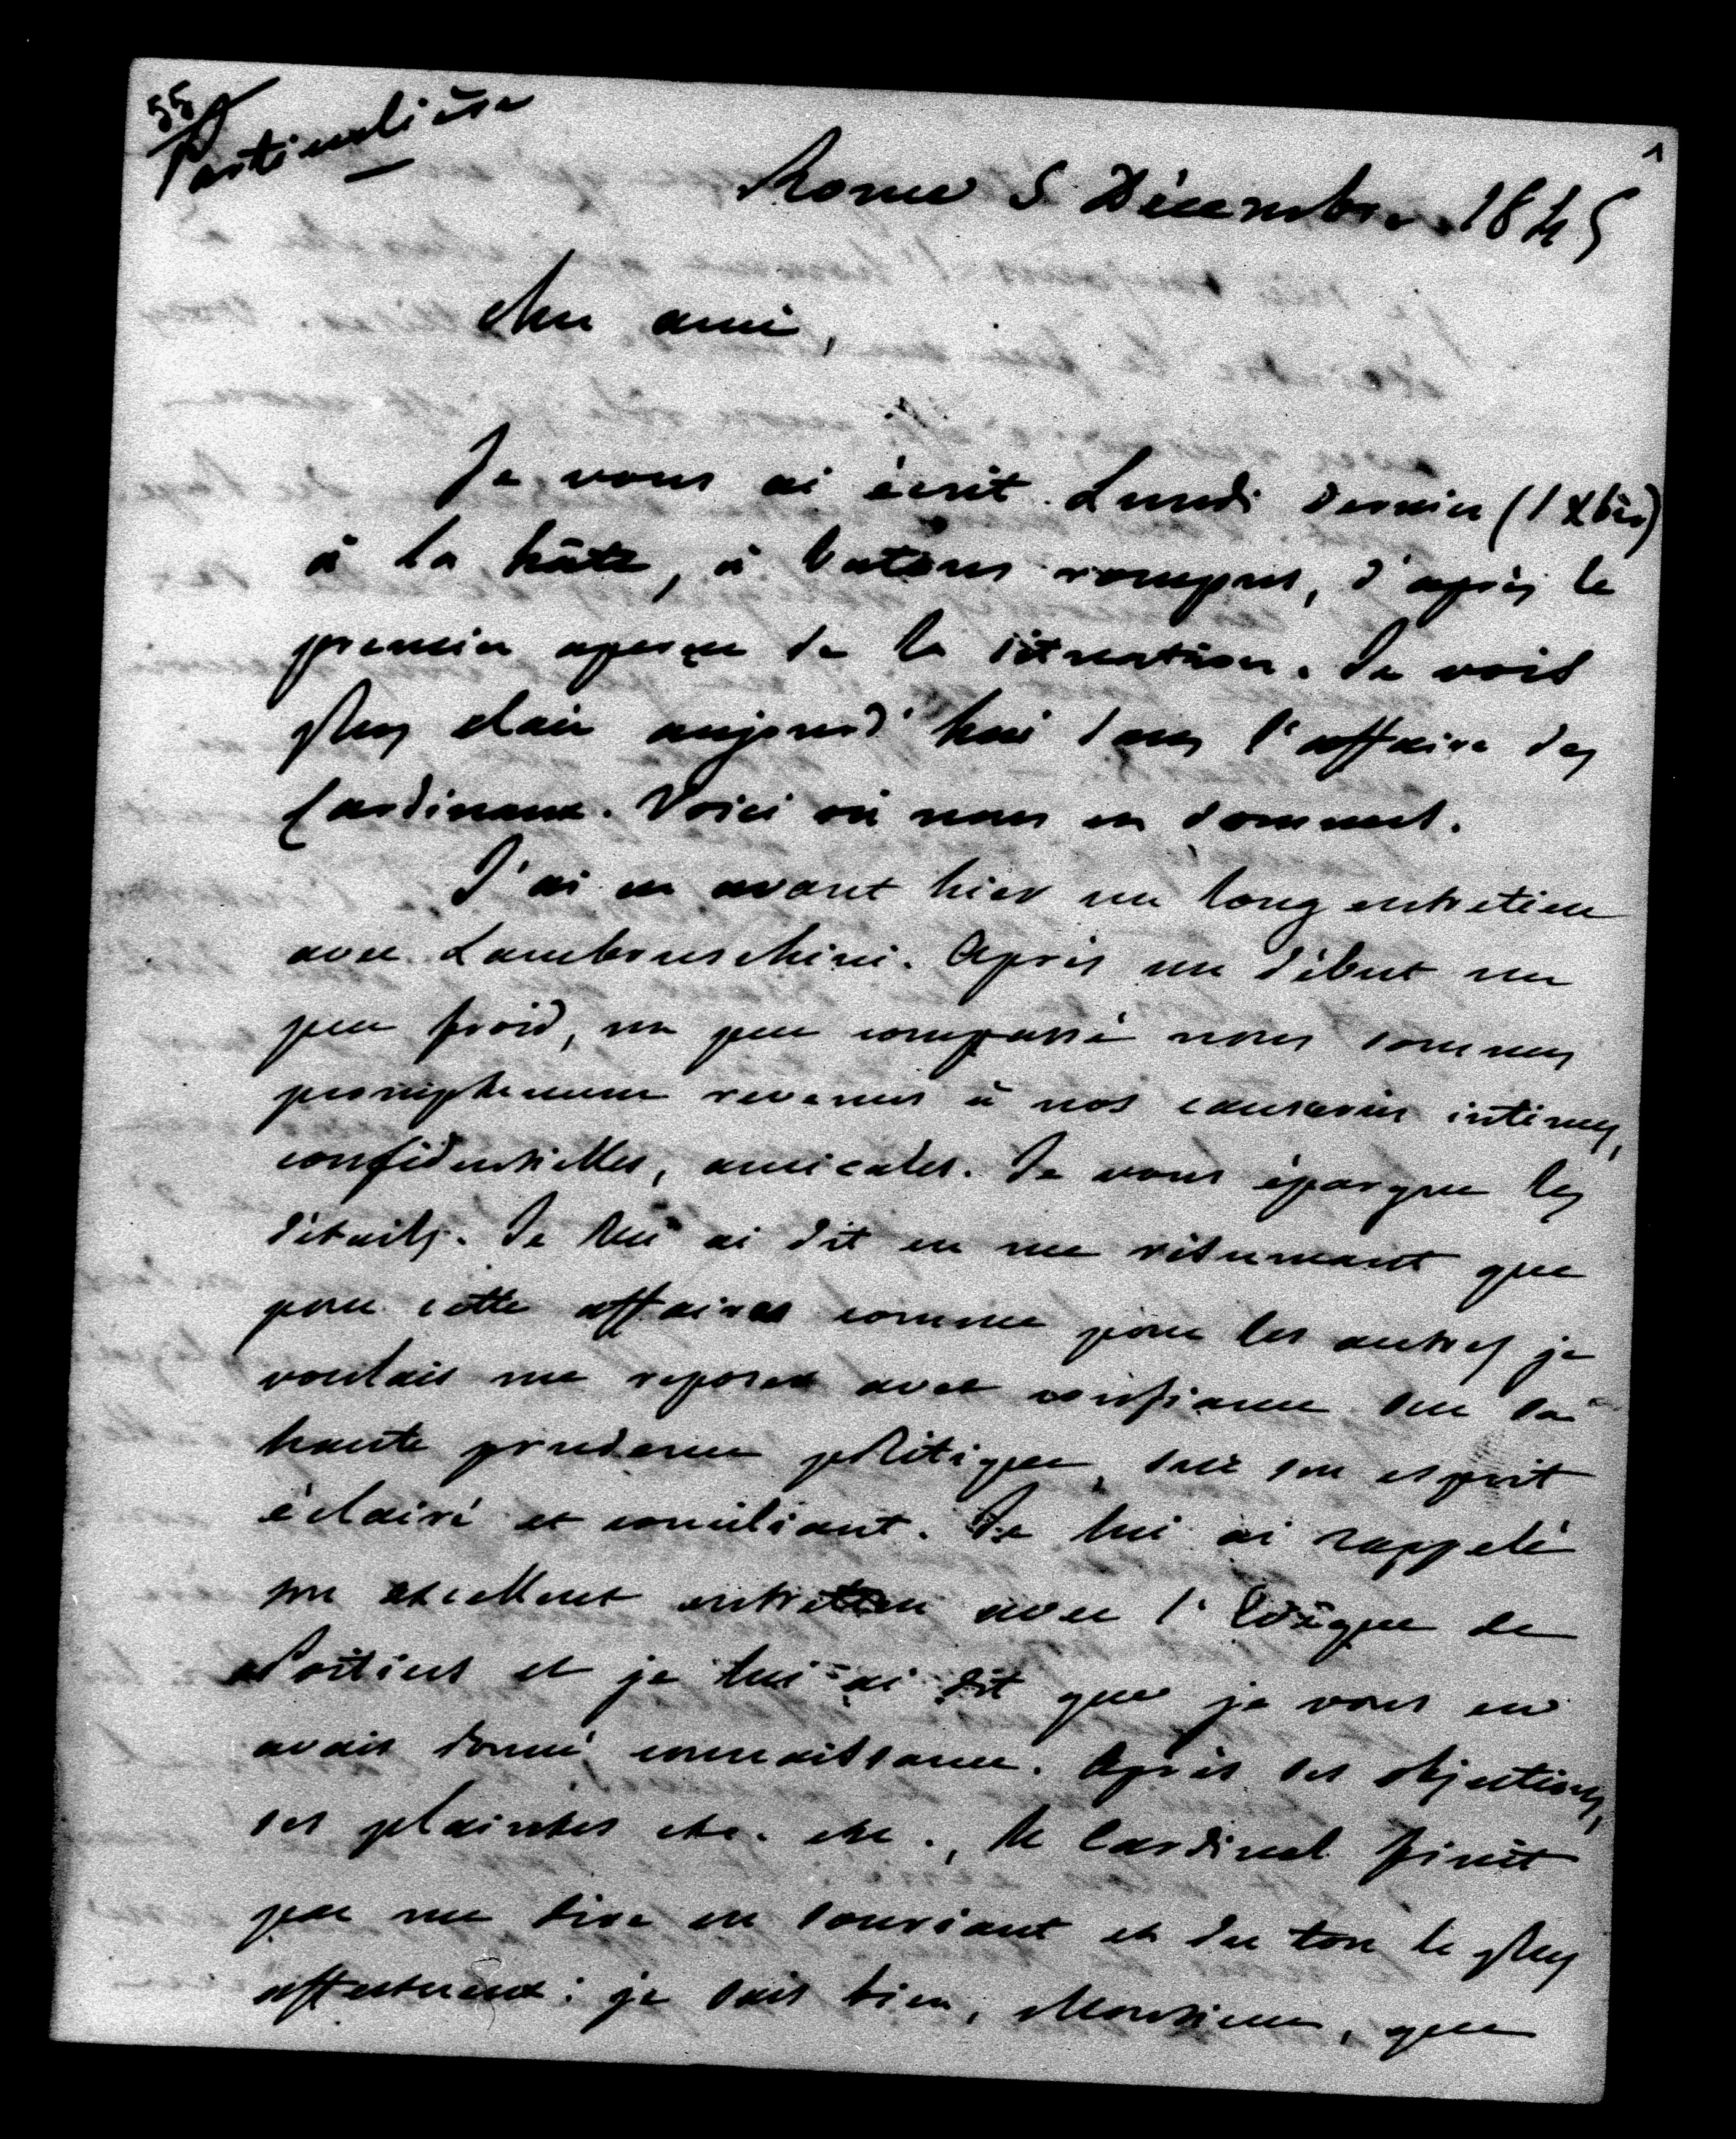 55
Particulière
1
Rome 5 Décembre 1845
Cher ami,
Je vous ai écrit Lundi dernier (1 Xbre)
à la hâte, à batons rompus, d'après le
premier aperçu de la situation. Je vois
plus clair aujourd'hui dans l'affaire des
Cardinaux. Voici où nous en sommes.
J'ai eu avant hier un long entretien
avec Lambruschini. Après un début un
peu froid, un peu compassé nous sommes
promptement revenus à nos causeries intimes,
confidentielles, amicales. Je vous épargne les
détails. Je lui ai dit en me résumant que
pour cette affaire comme pour les autres je
voulais me reposer avec confiance sur sa
haute prudence politique, sur son esprit
éclairé et conciliant. Je lui ai rappelé
son excellent entretien avec l'Evêque de
Poitiers et je lui ai dit que je vous en
avais donné connaissance. Après ses objections,
ses plaintes etc. etc., le Cardinal finit
par me dire en souriant et du ton le plus
affectueux : je sais bien, Monsieur, que